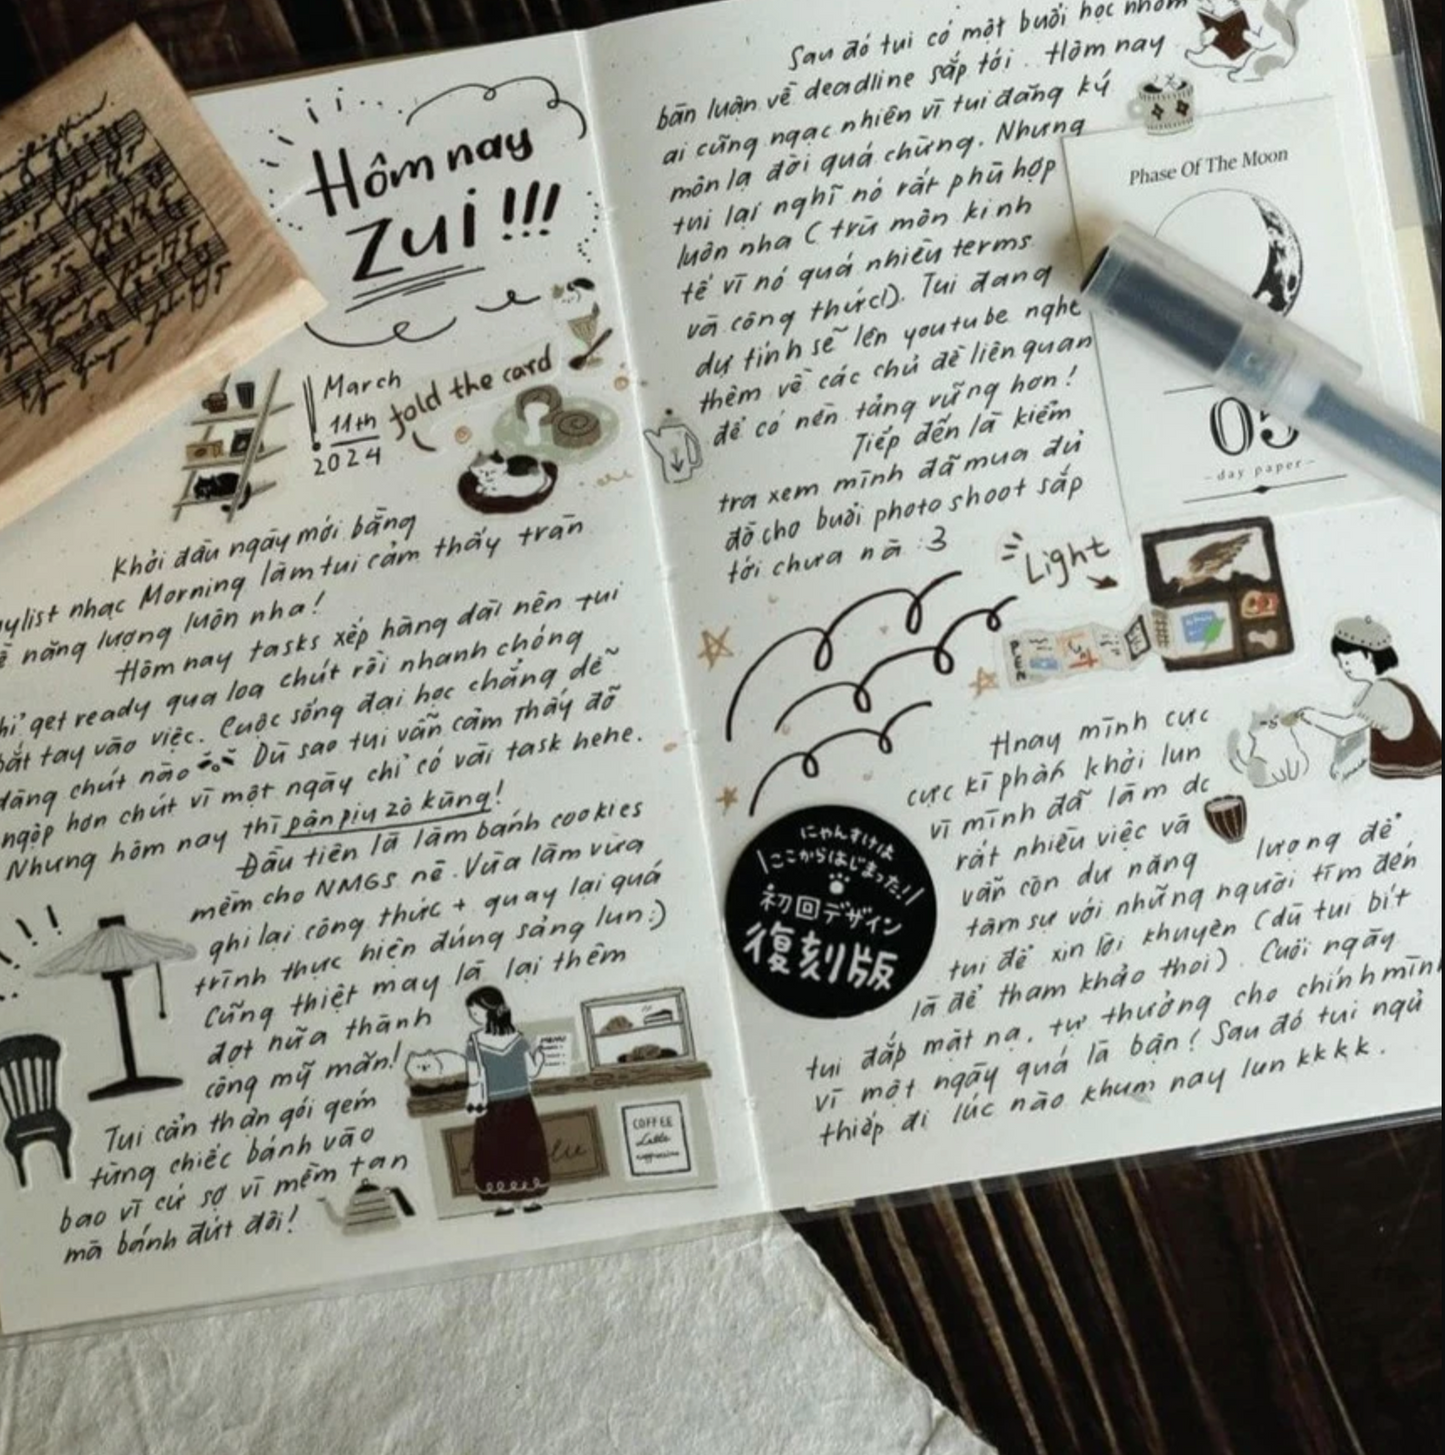 Hôm nay
Zui!!!
March
11th
2024
fold the card
Khởi đầu ngày mới bằng
nhạc Morning làm tui cảm thấy tràn
năng lượng luôn nha!
Hôm nay tasks xếp hàng dài nên tui
get ready qua loa chút rồi nhanh chóng
bắt tay vào việc. Cuộc sống đại học chẳng dễ
dàng chút nào Dù sao tui vẫn cảm thấy đỡ
ngộp hơn chút vì một ngày chỉ có vài task hehe.
Nhưng hôm nay thì pận pịu zô kũng!
Đầu tiên là làm bánh cookies
mềm cho NMGs nè. Vừa làm vừa
ghi lại công thức + quay lại quá
trình thực hiện đúng sảng lun:)
Cũng thiệt may là lại thêm
đợt nữa thành
công mỹ mãn!
Tui cẩn thận gói gém
từng chiếc bánh vào
bao vì cứ sợ vì mềm tan
mà bánh đứt đôi!
MENU
COFFEE
Latte
cappuccino
Sau đó tui có một buổi học nhóm
bàn luận về deadline sắp tới. Hôm nay
ai cũng ngạc nhiên vì tui đăng ký
môn lạ đời quá chừng. Nhưng
tui lại nghĩ nó rất phù hợp
luôn nha (trừ môn kinh
tế vì nó quá nhiều terms
và công thức!). Tui đang
dự tính sẽ lên youtube nghe
thêm về các chủ đề liên quan
để có nền tảng vững hơn!
Tiếp đến là kiểm
tra xem mình đã mua đủ
đồ cho buổi photoshoot sắp
tới chưa nà :3
Phase Of The Moon
05
-day paper-
Light
にゃんすけは
ここからはじまった!
初回デザイン
復刻版
Hnay mình cực
cực kì phấn khởi lun
vì mình đã làm dc
rất nhiều việc và
vẫn còn dư năng lượng để
tâm sự với những người tìm đến
tui để xin lời khuyên (dù tui bít
là để tham khảo thoi). Cuối ngày
tui đắp mặt nạ, tự thưởng cho chính mình
vì một ngày quá là bận! Sau đó tui ngủ
thiếp đi lúc nào khum nay lun kkkk.